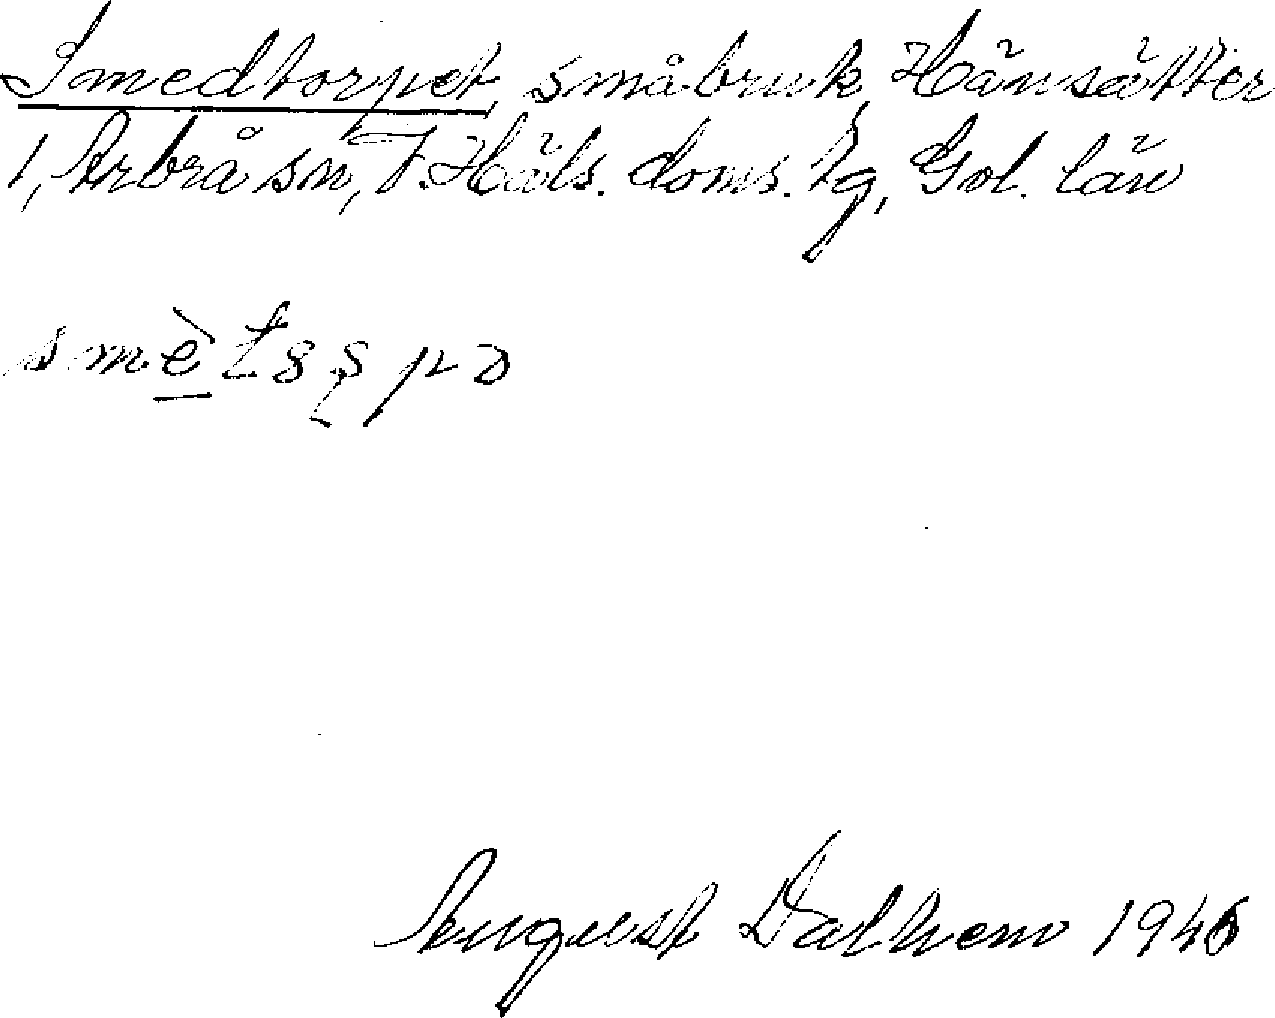 Smedtorpet, småbruk, Hänsätter
1, Arbrå sn, V. Häls. doms. tg, Gvl. län
smè̱t
August Dalhem 1946